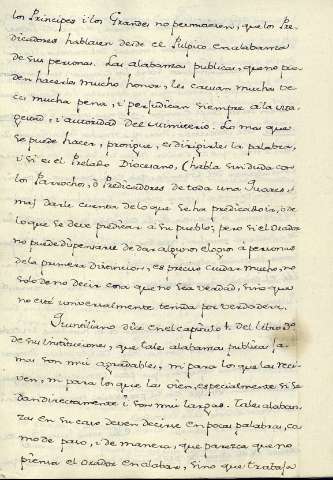 los Principes i los Grandes no permitiesen, que los Pre-
dicadores hablasen desde el Pulpito en alabanza
de sus personas. Las alabanzas publicas, que no pue-
den hacerlos mucho honor, les causan muchas ve-
ces mucha pena, i perjudican siempre a la
i autoridad del ministerio. Lo mas que
se puede hacer, prosigue, es dirigirle la palabra,
i si es el Prelado Diocesano, (habla sin duda con
los Parrochos, ò Predicadores de toda una Quares-
ma) darle cuenta de lo que se ha predicado, ò de
lo que se deve predicar a su pueblo; pero si el Orador
no puede dispensarse de dar algunos elogios a personas
de la primera distincion, es preciso cuidar mucho, no
solo de no decir cosa que no sea verdad, sino que
no esté universalmente tenida por verdadera.
Quintiliano dice en el capitulo 1. del libro 3º
de sus Instituciones, que tales alabanzas publicas ja-
mas son mui agradables, ni para los que las reci-
ven, ni para los que las oien, especialmente si se
dan directamente i son mui largas. Tales alaban-
zas en su caso deven decirse en pocas palabras, co-
mo de paso, i de manera, que parezca que no
piensa el Orador en alabar, sino que trabaja